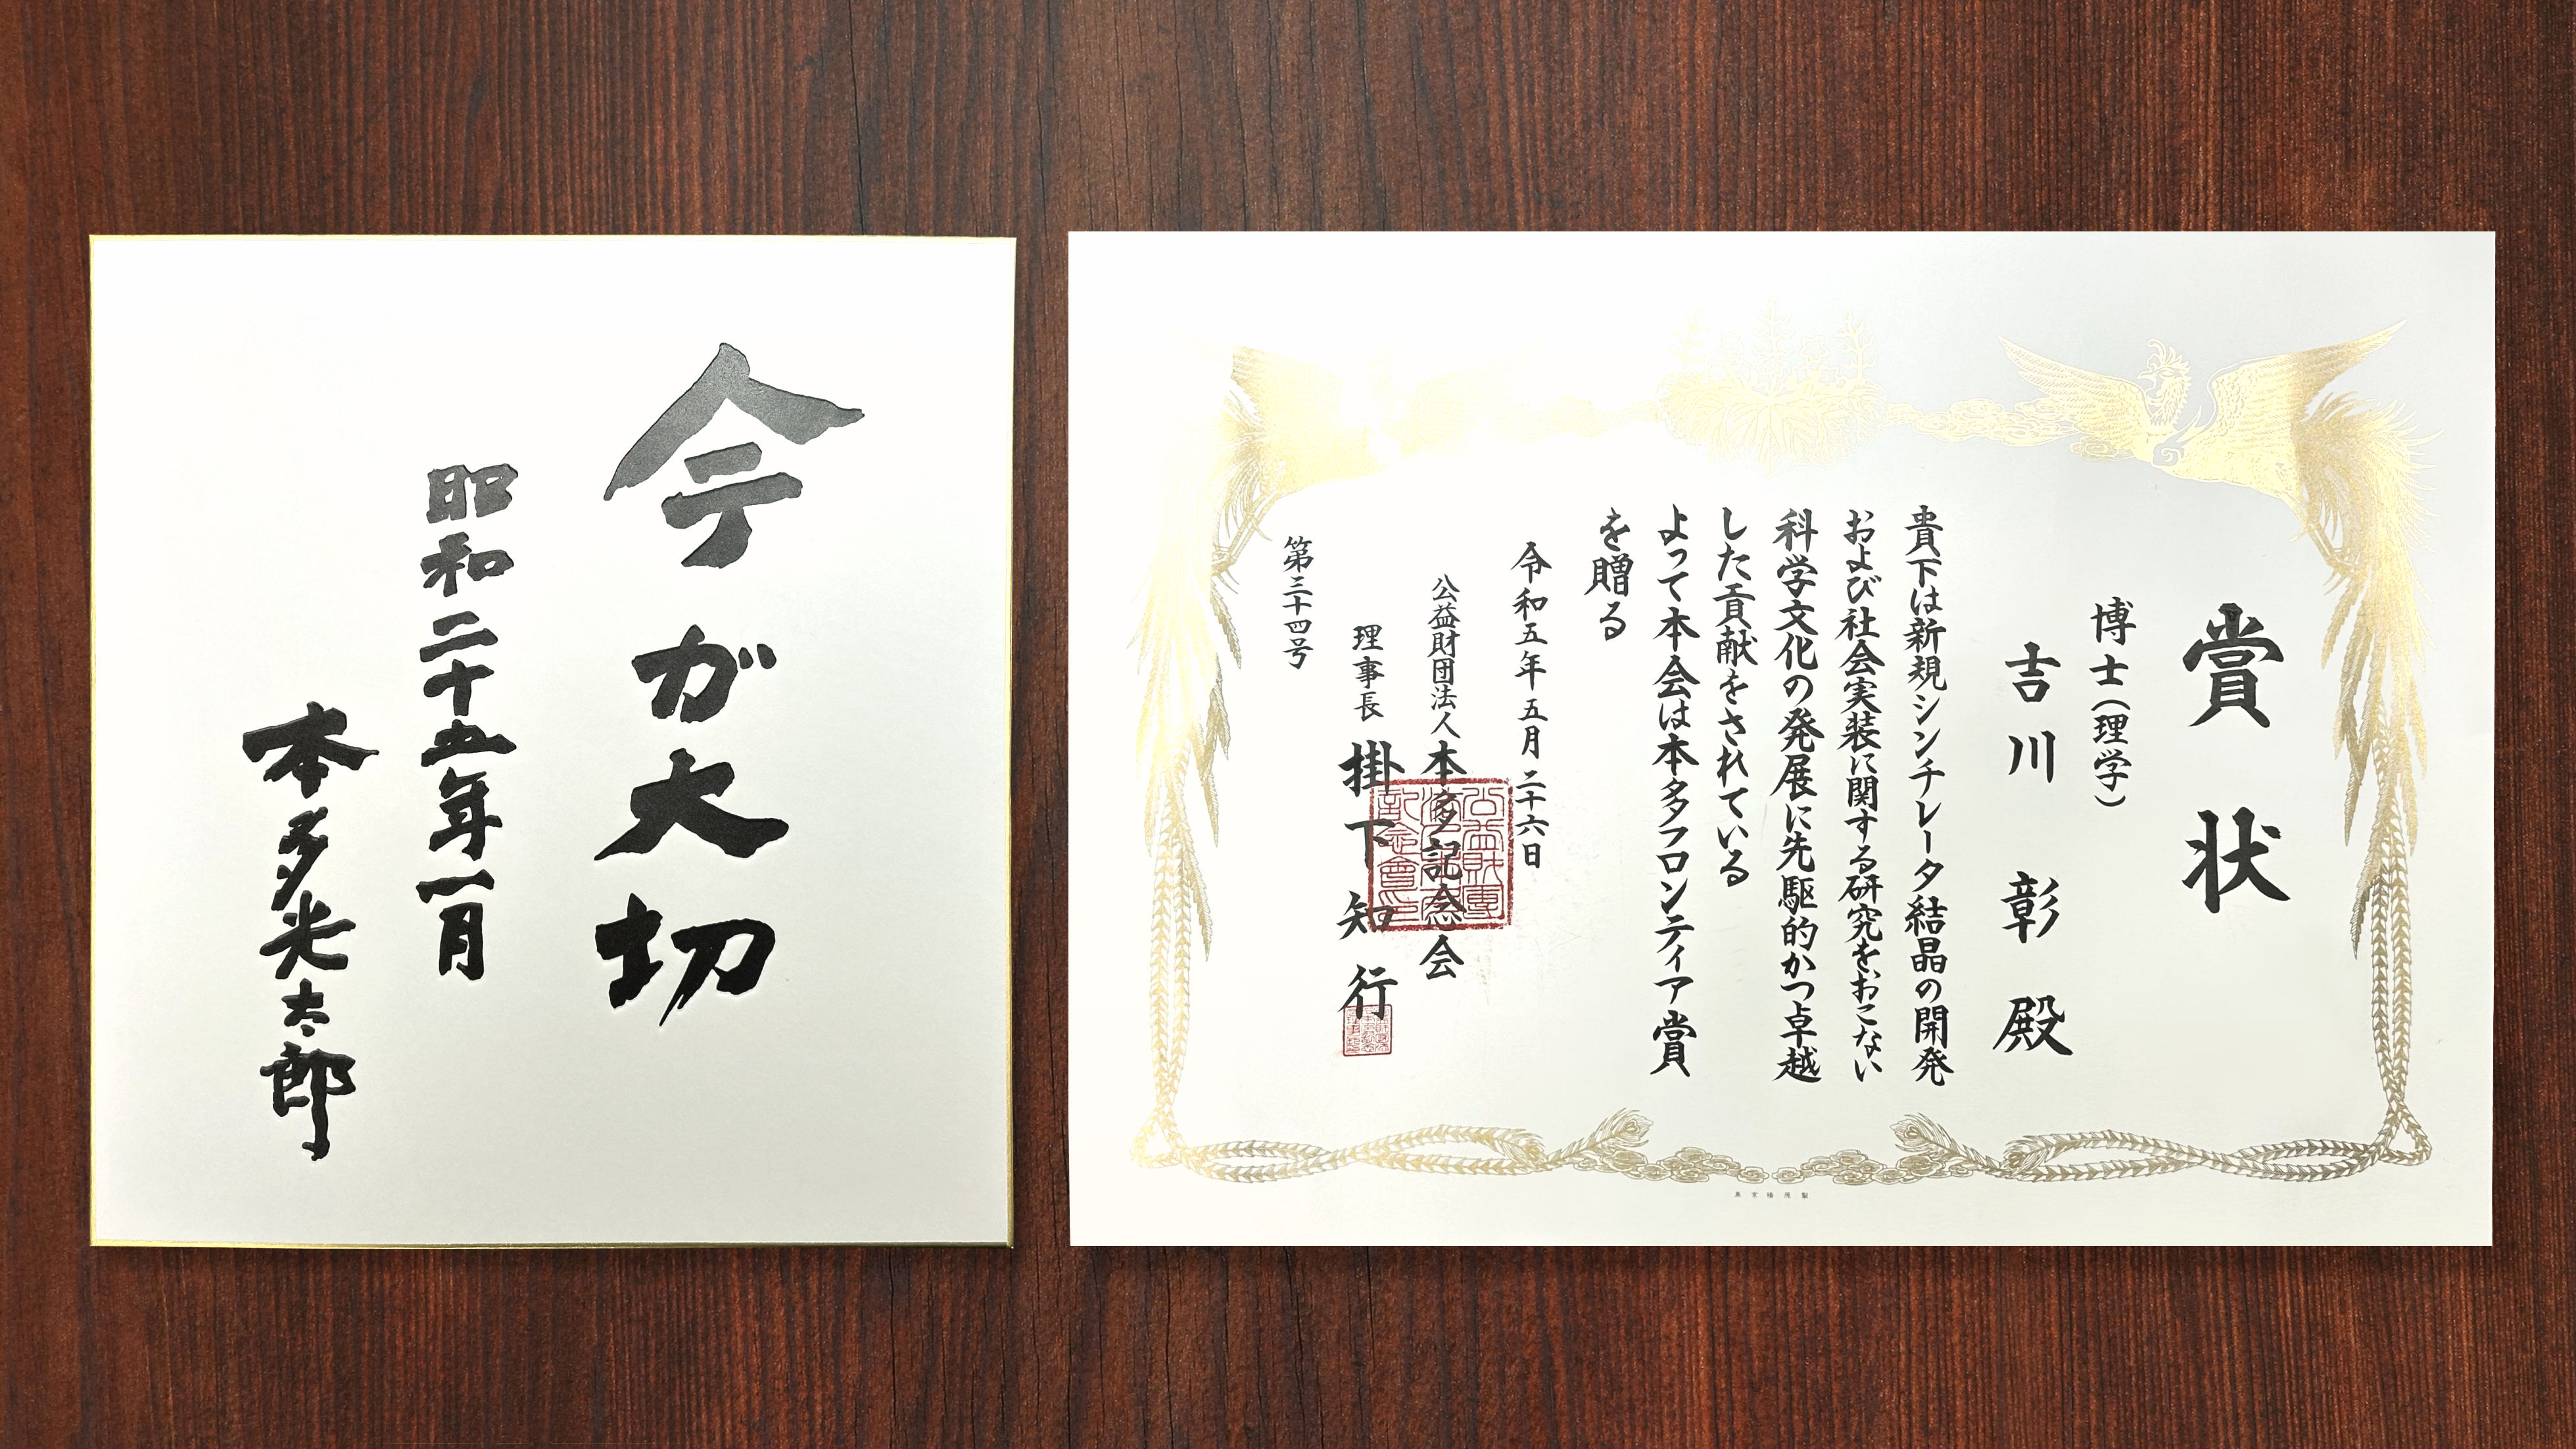 今が大切
昭和二十五年一月
本多光太郎
賞状
博士(理学)
吉川 彰 殿
貴下は新規シンチレータ結晶の開発
および社会実装に関する研究をおこない
科学文化の発展に先駆的かつ卓越
した貢献をされている
よって本会は本多フロンティア賞
を贈る
令和五年五月二十六日
公益財団法人本多記念会
理事長 掛下知行
第三十四号